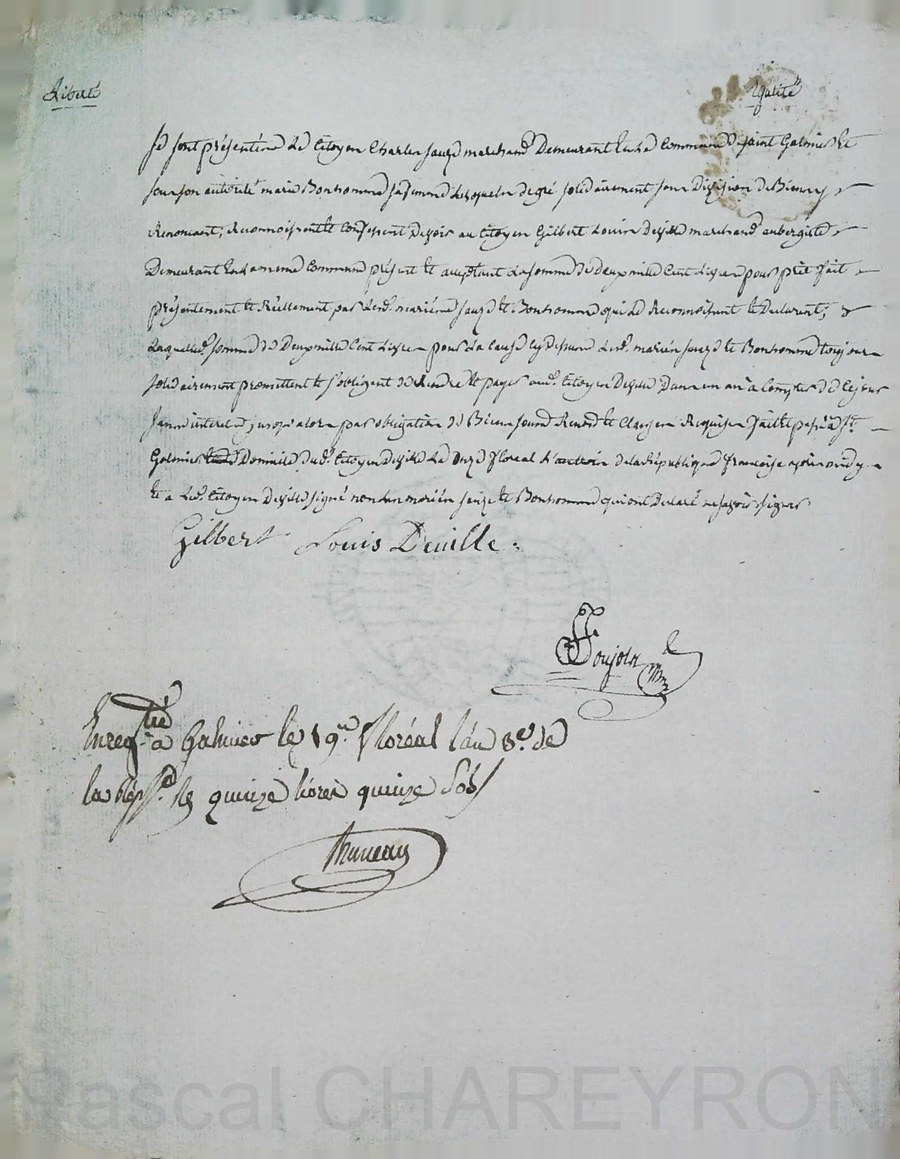 Liberté Egalité
Se sont présentés le Citoyen Charles sauze marchand Demeurant En la Commune de saint Galmier Et
sous son autorité marie Bonhomme sa femme Lesquels de gré solidairement sans Division de Biens y
Renoncant, Reconnoissent Et Confessent Devoir au Citoyen Gilbert Louis Deville marchand aubergiste
Demeurant En la meme Commune présent Et acceptant La somme de deux mille Cent Livres pour prêt fait
présentement Et Réellement par Led. mariés sauze Et Bonhomme qui Le Reconnoissent Et Declarent,
Laquelle somme de Deux mille Cent Livres pour La Cause cy dessus Les d. mariés sauze Et Bonhomme toujours
solidairement promettent Et s'obligent de Rendre Et payer aud. Citoyen Deville Dans un an à Compter de Ce jour
sans interet jusqu'alors par obligation de Biens soumis Renoncé Et Clauses Requises fait Et passé à St.
Galmier Domicile dud. Citoyen Deville Le Onze floreal de la République francoise
Et a Led. Citoyen Deville signé non Les mariés sauze Et Bonhomme qui ont Declaré ne savoir signer.
Gilbert Louis Deville.
Enregtré à Galmier le 19e. floréal l'an 3e. de
la Rep. quinze livres quinze sols
Pascal CHAREYRON